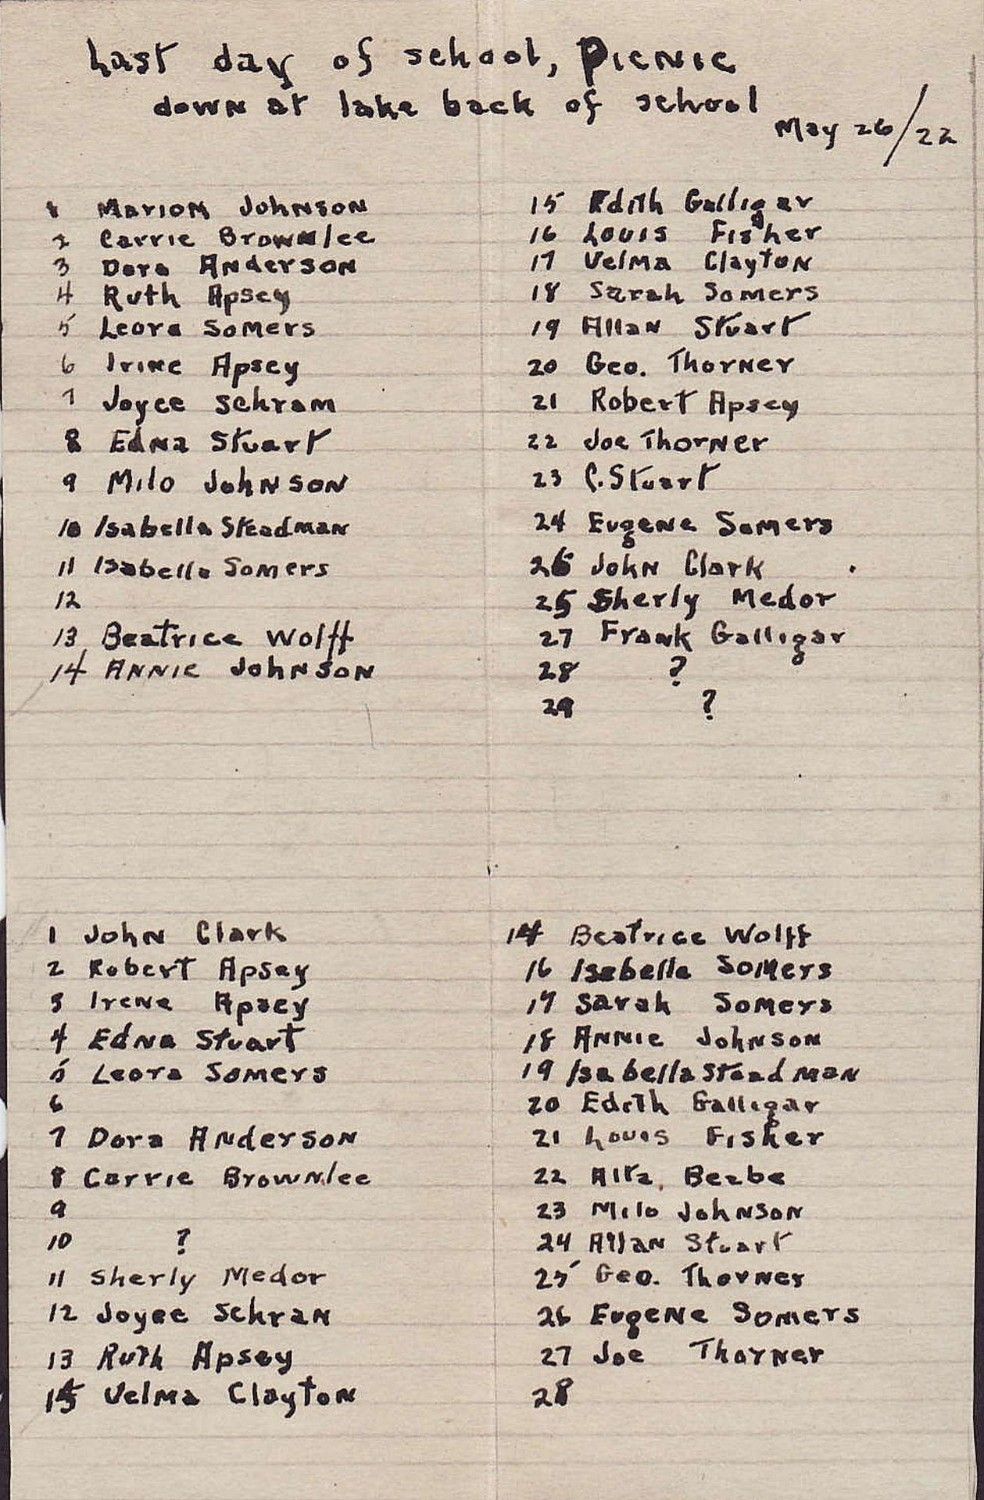 Last day of school, Picnic
down at lake back of school
May 26/22
1 Marion Johnson
2 Carrie Brownlee
3 Dora Anderson
4 Ruth Apsey
5 Leora Somers
6 Irine Apsey
7 Joyce Schram
8 Edna Stuart
9 Milo Johnson
10 Isabella Steadman
11 Isabella Somers
12
13 Beatrice Wolff
14 Annie Johnson
15 Edith Galligar
16 Louis Fisher
17 Velma Clayton
18 Sarah Somers
19 Allan Stuart
20 Geo. Thorner
21 Robert Apsey
22 Joe Thorner
23 C. Stuart
24 Eugene Somers
26 John Clark
25 Sherly Medor
27 Frank Galligar
28 ?
29 ?
1 John Clark
2 Robert Apsey
3 Irene Apsey
4 Edna Stuart
5 Leora Somers
6
7 Dora Anderson
8 Carrie Brownlee
9
10 ?
11 Sherly Medor
12 Joyce Schran
13 Ruth Apsey
15 Velma Clayton
14 Beatrice Wolff
16 Isabella Somers
17 Sarah Somers
18 Annie Johnson
19 Isabella Steadman
20 Edith Galligar
21 Louis Fisher
22 Alta Beebe
23 Milo Johnson
24 Allan Stuart
25 Geo. Thorner
26 Eugene Somers
27 Joe Thorner
28